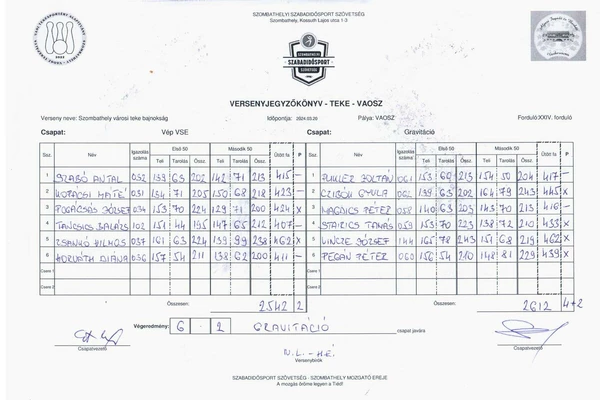 SZOMBATHELYI SZABADIDŐSPORT SZÖVETSÉG
Szombathely, Kossuth Lajos utca 1-3
SZABADIDŐSPORT
VERSENYJEGYZŐKÖNYV - TEKE - VAOSZ
Verseny neve: Szombathely városi teke bajnokság Időpontja: 2024.03.26 Pálya: VAOSZ Forduló: XXIV. forduló
Csapat: Vép VSE Csapat: Gravitáció
Ssz. Név Igazolás száma Első 50 Második 50 Ütött fa P Ssz. Név Igazolás száma Első 50 Második 50 Ütött fa P
Teli Tarolás Össz. Teli Tarolás Össz. Teli Tarolás Össz. Teli Tarolás Össz.
1 SZABÓ ANTAL 032 139 63 202 142 71 213 415 - 1 ZOLTÁN 061 153 60 213 154 50 204 417 -
2 KOPÁCSI MÁTÉ 031 134 71 205 150 68 218 423 - 2 CZIBOR GYULA 062 139 63 202 164 79 243 445 X
3 FOGACSÁS JÓZSEF 034 153 70 224 129 71 200 424 X 3 PÉTER 058 140 63 203 143 70 213 416 -
4 TANCSICS BALÁZS 102 151 44 195 147 65 212 407 - 4 TAMÁS 059 153 70 223 138 72 210 433 X
5 ZSANKÓ VILMOS 037 161 63 224 139 99 238 462 X 5 VINCZE JÓZSEF 144 165 78 243 151 68 219 462 X
6 HORVÁTH DIÁNA 036 157 54 211 138 62 200 411 - 6 PÉTER 060 156 54 210 148 81 229 439 X
Csere 1 Csere 1
Csere 2 Csere 2
Összesen: 2542 2 Összesen: 2612 4+2
Végeredmény: 6 - 2 GRAVITÁCIÓ csapat javára
Csapatvezető Csapatvezető
N.L.-H.É.
Versenybírók
SZABADIDŐSPORT SZÖVETSÉG - SZOMBATHELY MOZGATÓ EREJE
A mozgás öröme legyen a Tiéd!